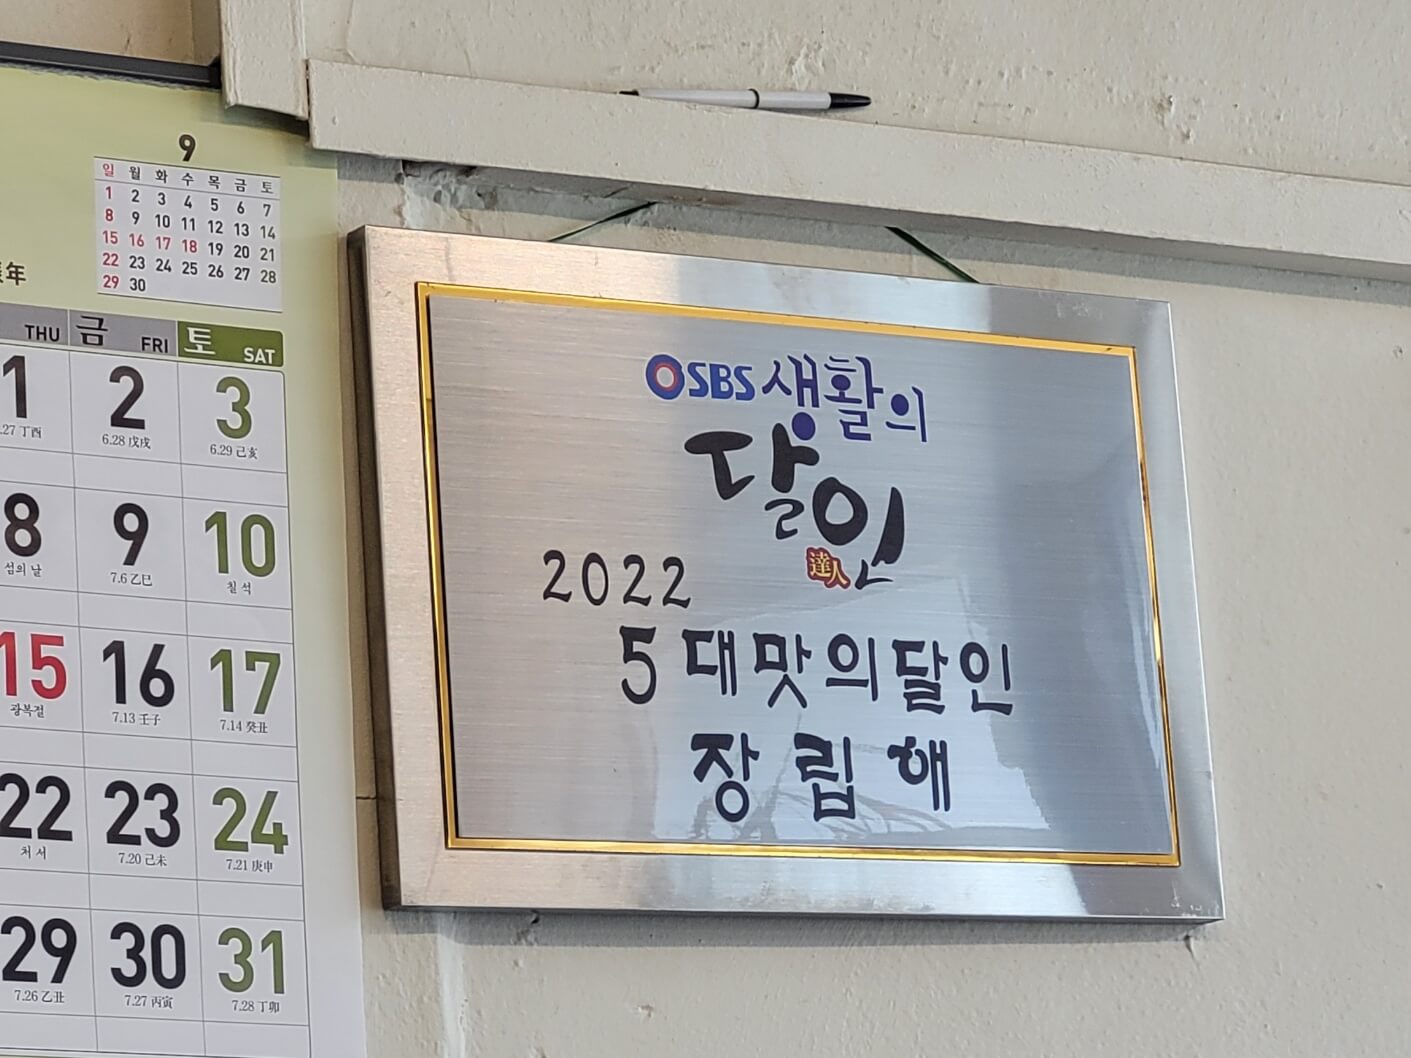 9
일 월 화 수 목 금 토
1 2 3 4 5 6 7
8 9 10 11 12 13 14
15 16 17 18 19 20 21
22 23 24 25 26 27 28
29 30
年
THU 금 FRI 토 SAT
1 2 3
.27 丁酉 6.28 戊戌 6.29 己亥
8 9 10
섬의 날 7.6 乙巳 칠석
15 16 17
광복절 7.13 壬子 7.14 癸丑
22 23 24
처서 7.20 己未 7.21 庚申
29 30 31
7.26 乙丑 7.27 丙寅 7.28 丁卯
SBS 생활의
달인
達人
2022
5대맛의달인
장립해